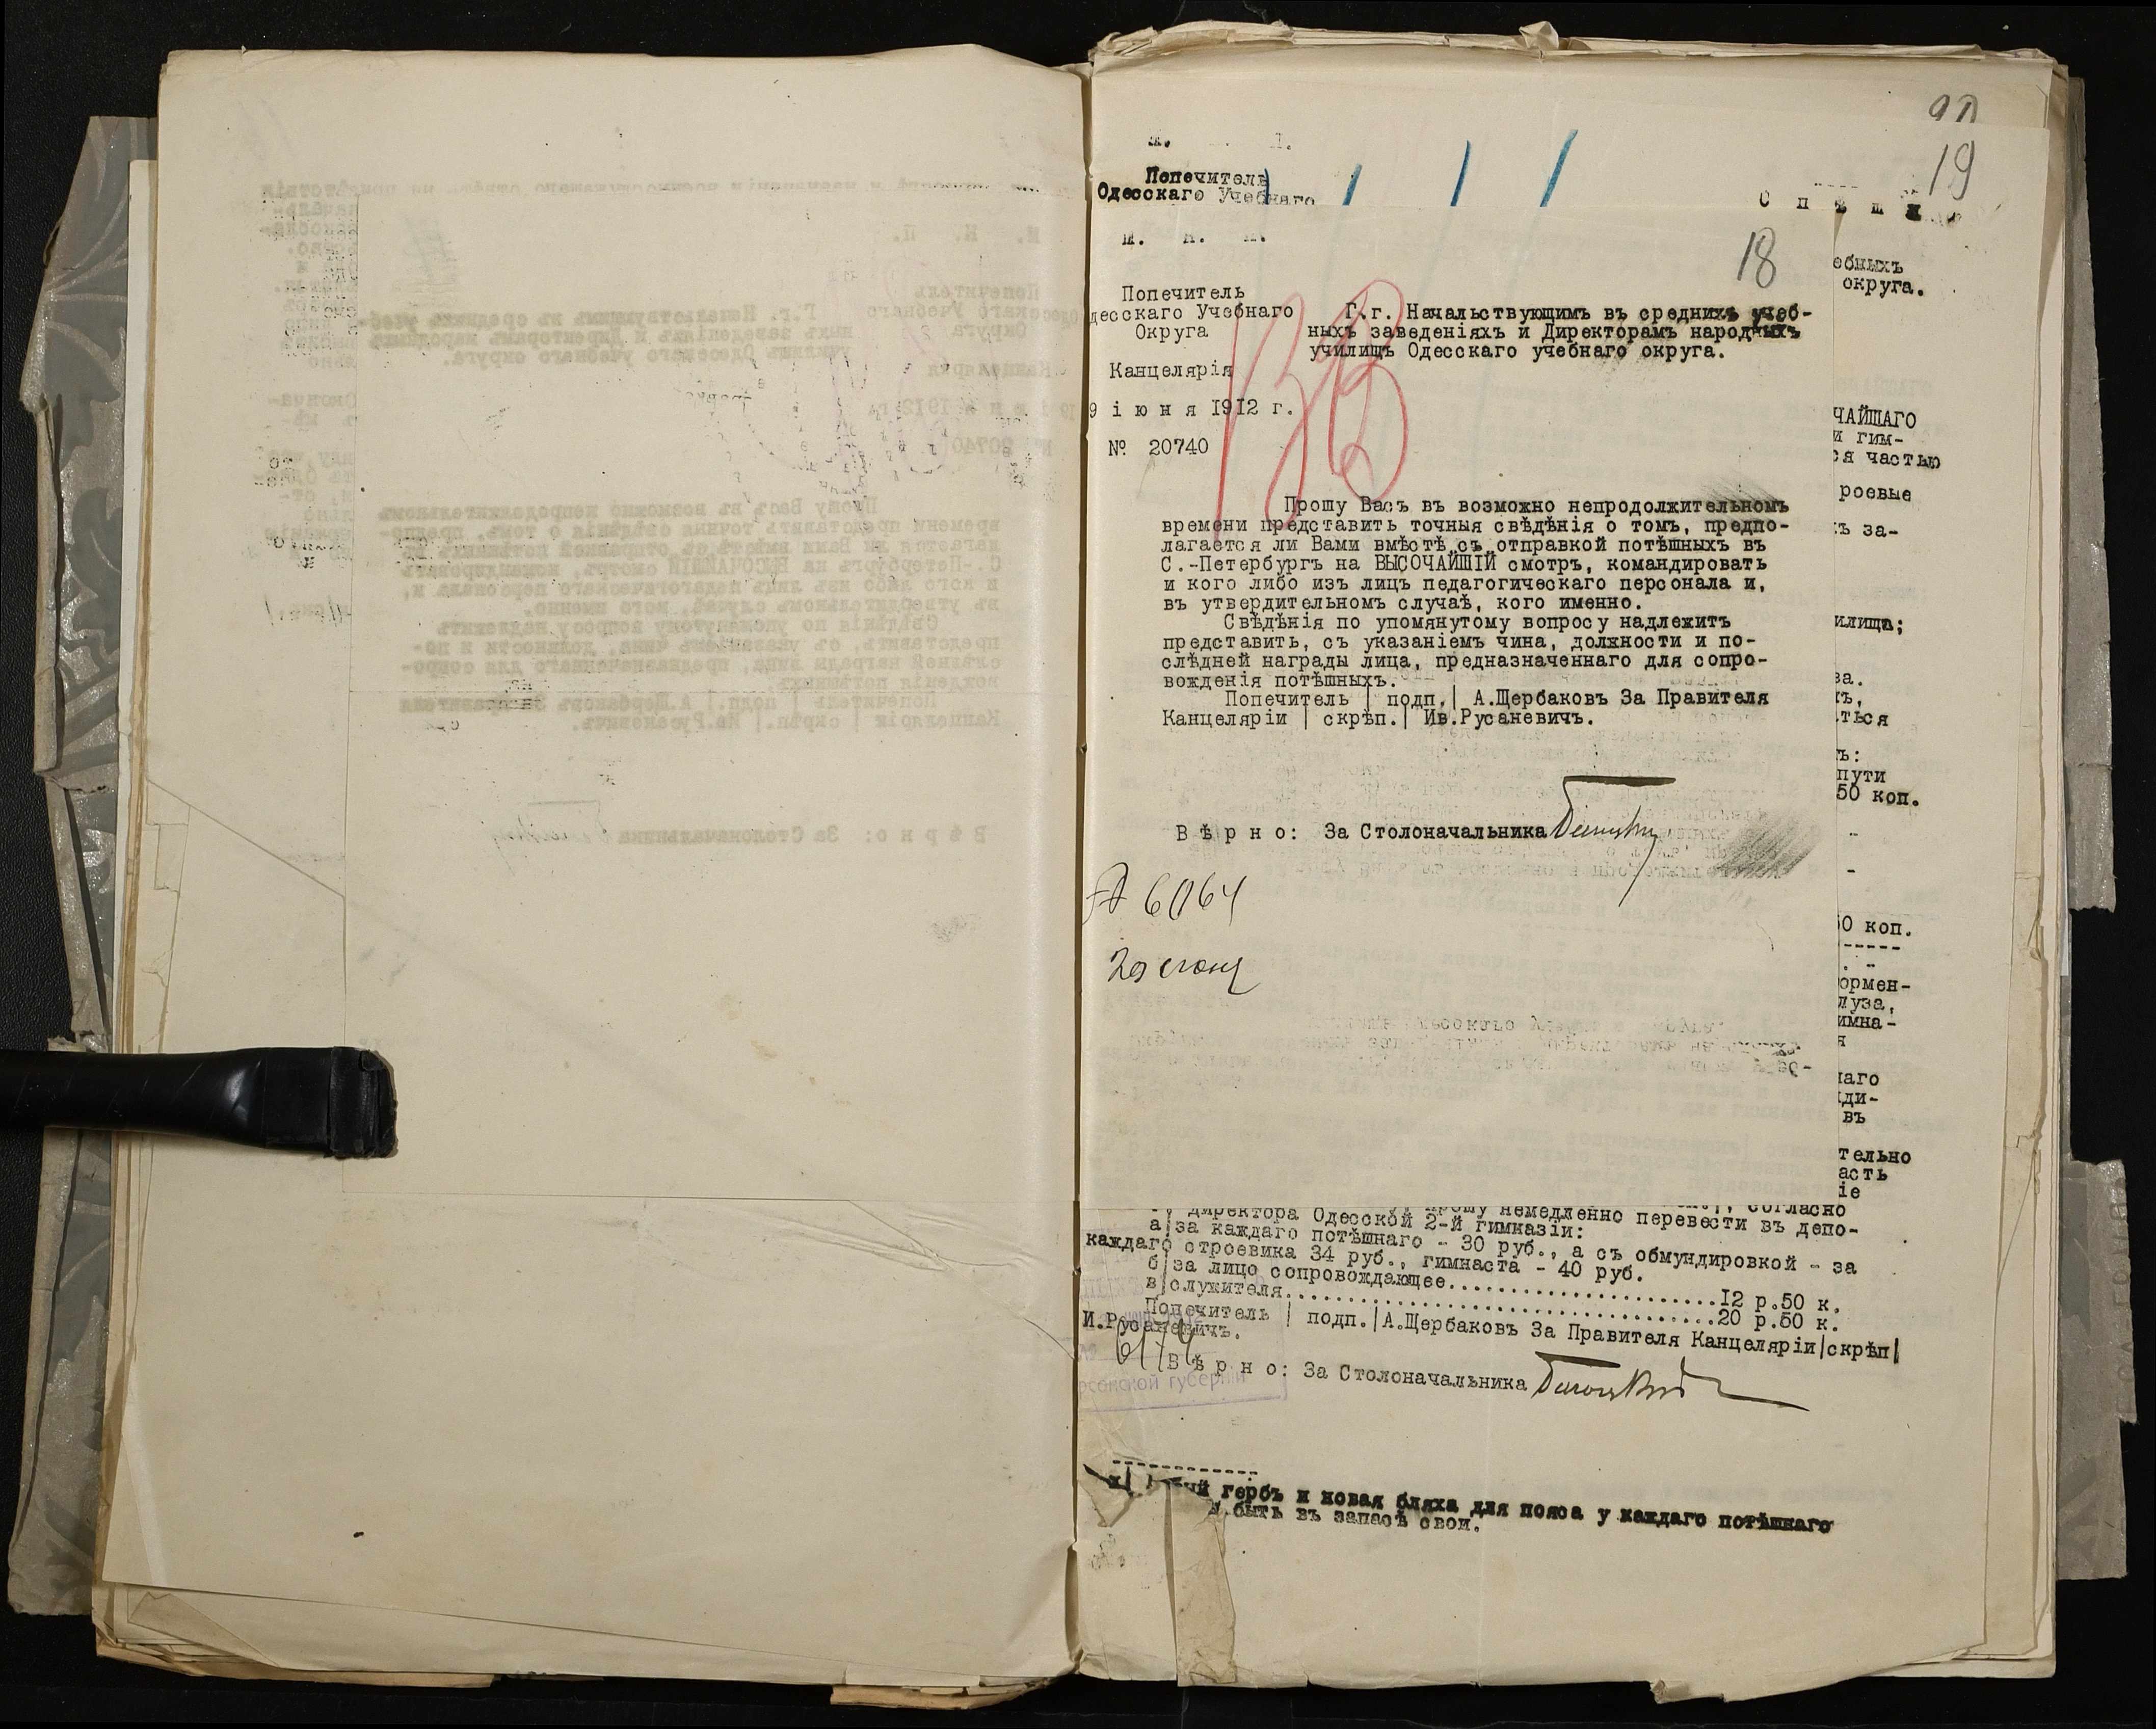 20
19
Попечитель
Одесскаго Учебнаго
С п ѣ ш н
18
М. Н. П.
Попечитель
десскаго Учебнаго
Округа
Канцелярія
9 і ю н я 1912 г.
№ 20740
Г.г. Начальствующимъ въ среднихъ учеб-
ныхъ заведеніяхъ и Директорамъ народныхъ
училищъ Одесскаго учебнаго округа.
Прошу Васъ въ возможно непродолжительномъ
времени представить точныя свѣдѣнія о томъ, предпо-
лагается ли Вами вмѣстѣ съ отправкой потѣшныхъ въ
С.-Петербургъ на ВЫСОЧАЙШІЙ смотръ, командировать
и кого либо изъ лицъ педагогическаго персонала и,
въ утвердительномъ случаѣ, кого именно.
Свѣдѣнія по упомянутому вопросу надлежитъ
представить, съ указаніемъ чина, должности и по-
слѣдней награды лица, предназначеннаго для сопро-
вожденія потѣшныхъ.
Попечитель | подп.| А.Щербаковъ За Правителя
Канцеляріи | скрѣп.| Ив.Русаневичъ.
В ѣ р н о: За Столоначальника
6064
20 июня
ебныхъ
округа.
ЧАЙШАГО
и гим-
ся частью
роевые
ъ за-
илища;
за.
ъ,
ться
ъ:
пути
50 коп.
-
-
50 коп.
-----
ормен-
луза,
имна-
я
аго
ди-
въ
тельно
асть
іе
прошу немедленно перевести въ депо-
директора Одесской 2-й гимназіи: согласно
а|за каждаго потѣшнаго - 30 руб., а съ обмундировкой - за
каждаго строевика 34 руб., гимнаста - 40 руб.
б|за лицо сопровождающее......................12 р.50 к.
в|служителя...................................20 р.50 к.
Попечитель | подп.|А.Щербаковъ За Правителя Канцеляріи|скрѣп|
И.Русаневичъ.
6174
В ѣ р н о: За Столоначальника
рсонской губерніи
------------
гербъ и новая бляха для пояса у каждаго потѣшнаго
быть въ запасѣ свои.